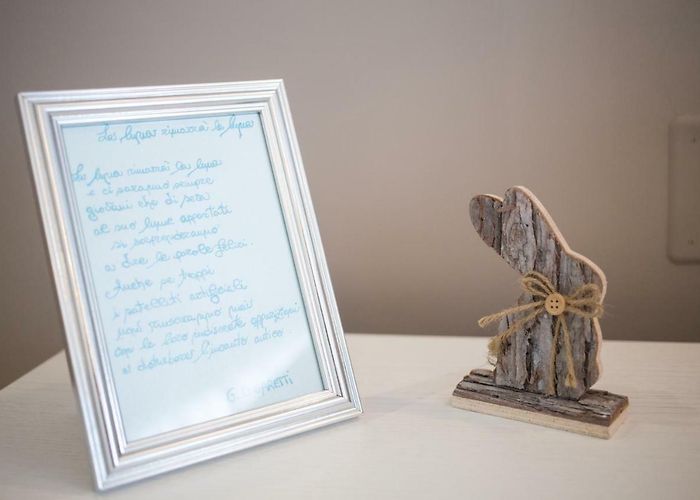 La luna rimarrà la luna
La luna rimarrà la luna
e ci saranno sempre
giovani che di sera
al suo lume appartati
si sorprenderanno
a dire le parole felici.
Anche se troppi
i satelliti artificiali
non riusciranno mai
con le loro indiscrete apparizioni
a distruggere l'incanto antico.
G.